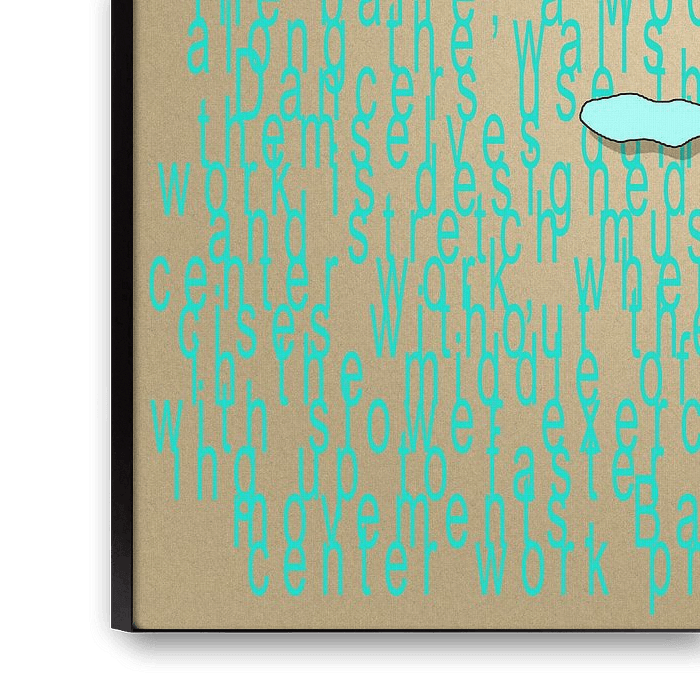 the barre, a wo
along the walls
Dancers use th
themselves duri
work is designed
and stretch mus
center work, whe
cises without the
in the middle of
with slower exerc
ing up to faster
movements. Ba
center work pr